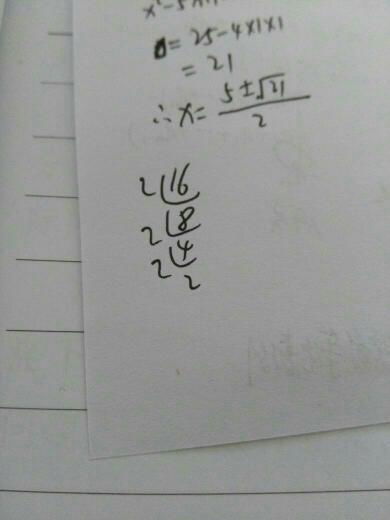 x²-5x+1
=25-4×1×1
=21
∴x=5±√21/2
2 16
2 8
2 4
2